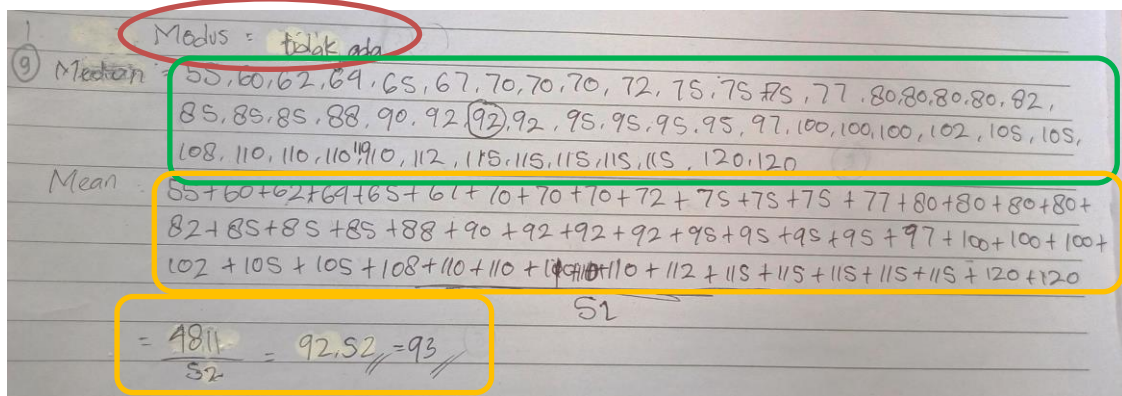 Modus = tidak ada
9 Median = 55, 60, 62, 64, 65, 67, 70, 70, 70, 72, 75, 75, 75, 77, 80, 80, 80, 80, 82,
85, 85, 85, 88, 90, 92, 92, 92, 95, 95, 95, 95, 97, 100, 100, 100, 102, 105, 105,
108, 110, 110, 110, 110, 112, 115, 115, 115, 115, 115, 120, 120
Mean : 55+60+62+64+65+67+70+70+70+72+75+75+75+77+80+80+80+80+
82+85+85+85+88+90+92+92+92+95+95+95+95+97+100+100+100+
102+105+105+108+110+110+110+110+112+115+115+115+115+115+120+120
= 4811 = 92,52 = 93
52